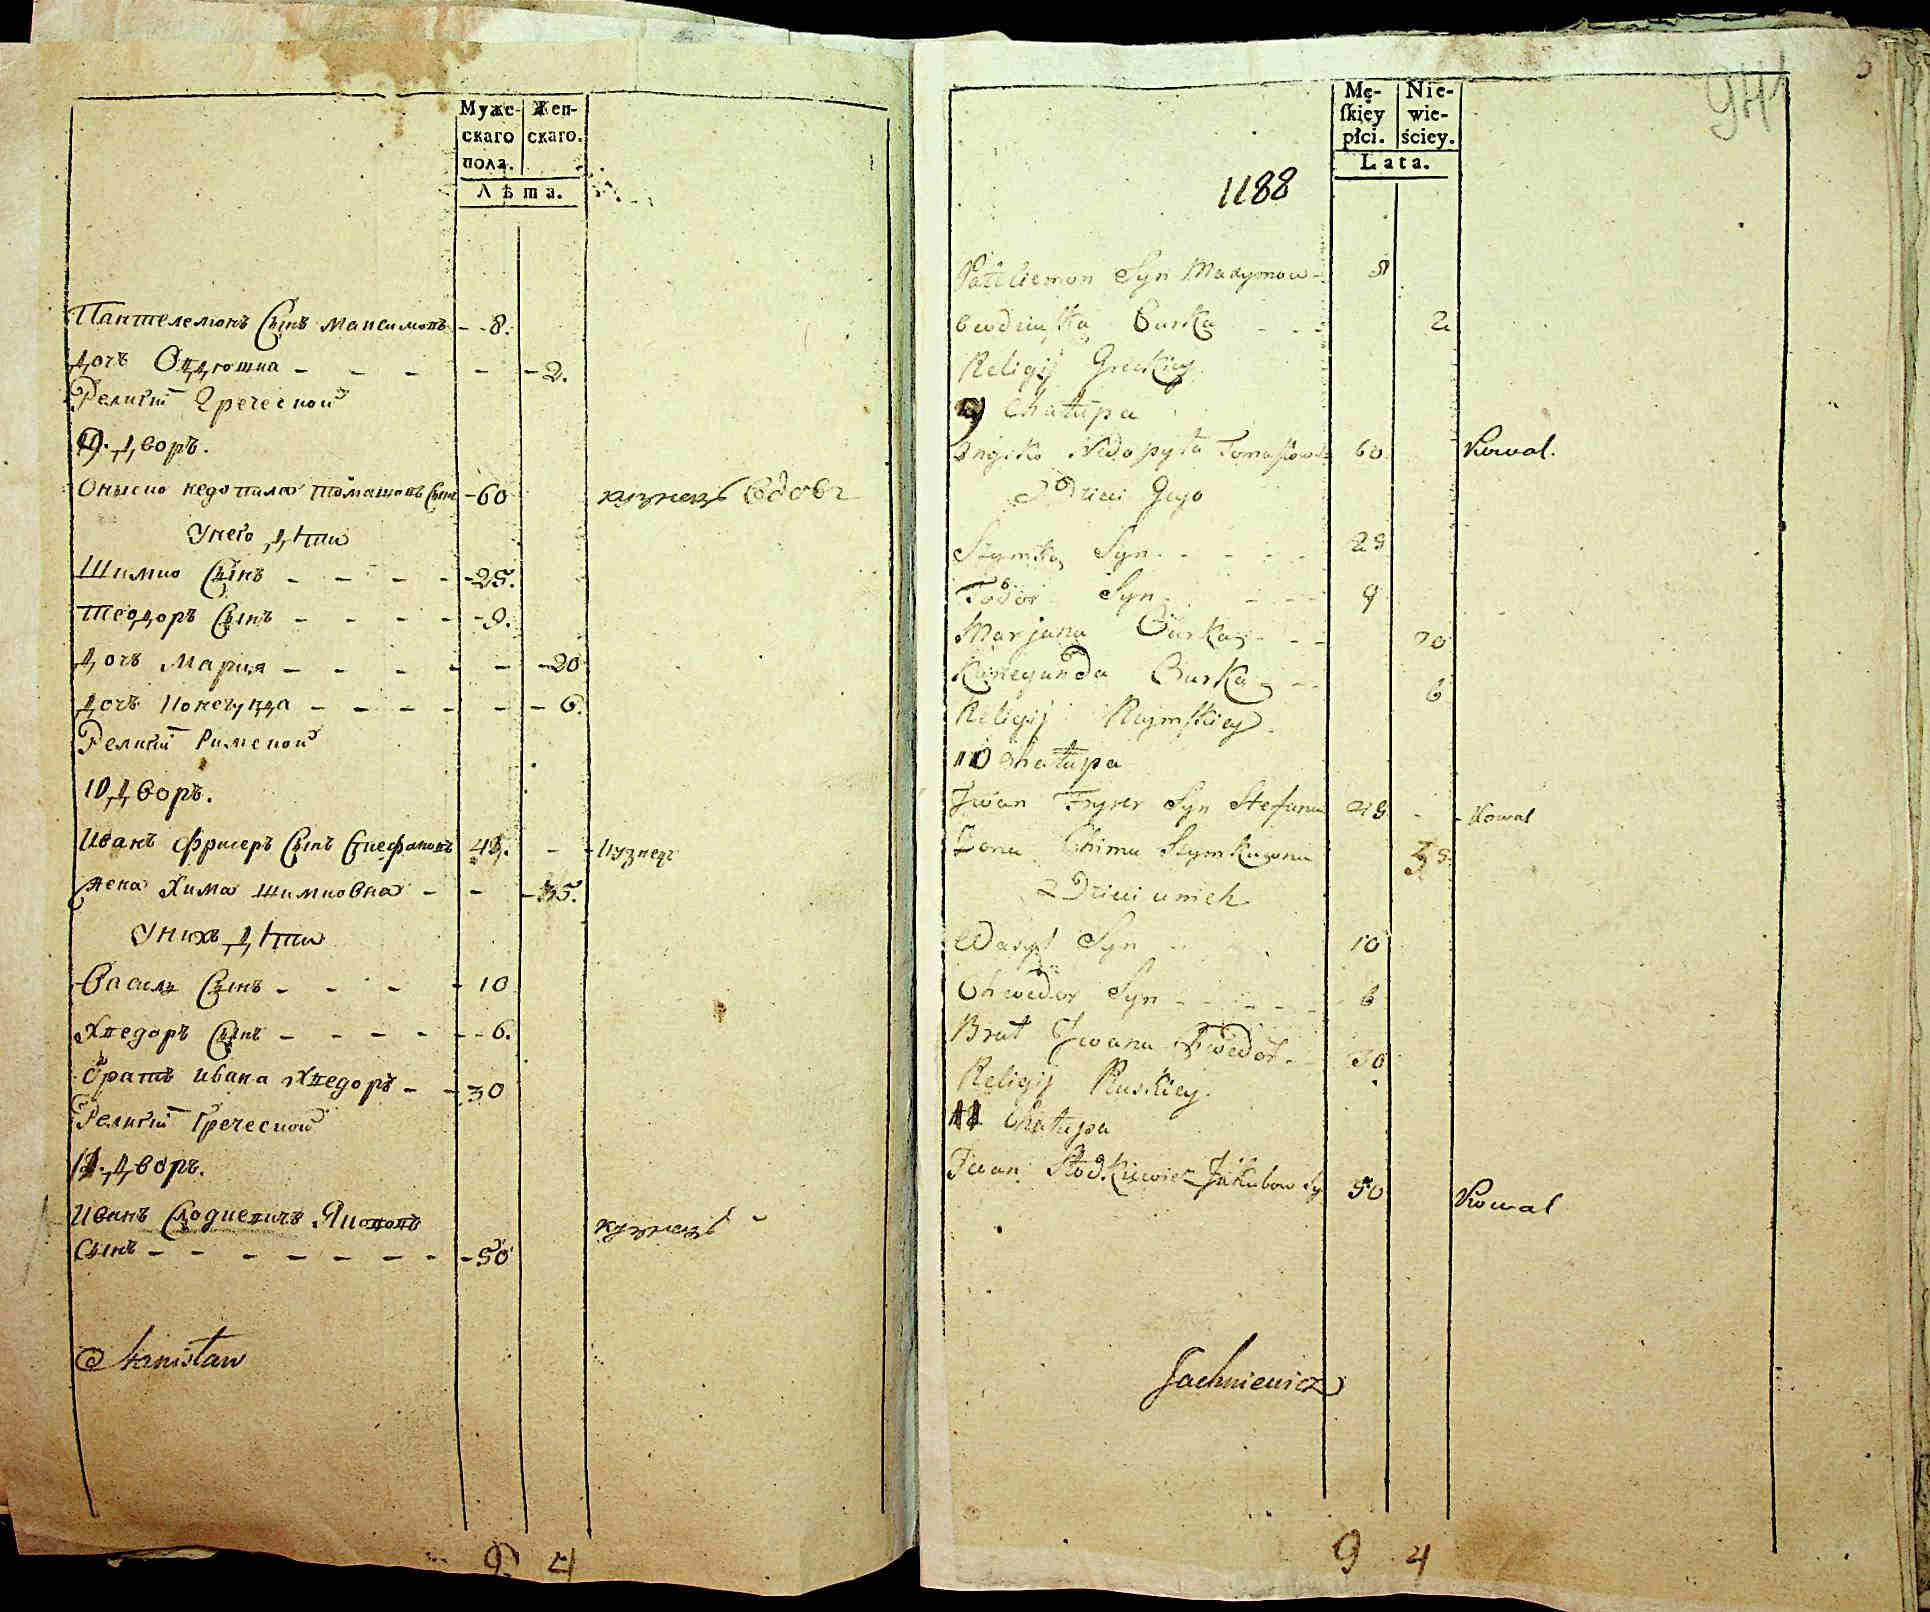 Муже-
скаго
пола.
Жен-
скаго.
Лѣта.
Пантелемонъ Сынъ Максимовъ - - 8.
дочь Овдюшка - - - - - 2.
Религіи Греческой
9. дворъ.
Онысько недопыта томашовъ Сынъ - 60 кузнецъ вдовъ
Унего дѣти
Шимко Сынъ - - - - - 25.
теодоръ Сынъ - - - - - 9.
дочь Мария - - - - - - 20
дочь Конегунда - - - - - - 6.
Религіи Римской
10 дворъ.
Иванъ Фрисеръ Сынъ Стефановъ 45. - - кузнец
жена Хима шимковна - - - 35.
Унихъ дѣти
Василь Сынъ - - - - 10
Хведоръ Сынъ - - - - - - 6.
братъ ивана Хведоръ - - 30
Религіи Греческой
11. дворъ.
Иванъ Слодкевичъ Якововъ кузнецъ
Сынъ - - - - - - - - 50
Stanisław
9 4
94
5
Mę-
ſkiey
płci.
Nie-
wie-
ściey.
Lata.
1188
Syn Maxymow - 8
Owdziuszka Curka - - - 2
Religij Greckiey
9 Chałupa
Onyśko Niedopyta Tomaszow 60 Kowal.
Dzieci Jego
Szymko Syn - - - - 25
Fodor Syn - - - - 9
Marjana Curka - - - 20
Kunegunda Curka - - - 6
Religij Rzymskiey
10 Chałupa
Jwan Fryzer Syn Stefana 45 - - Kowal
Żona Chima Szymkowna 35
Dzieci unich
Wasyl Syn - - - 10
Chwedor Syn - - - - - 6
Brat Jwana Fwedor - 30
Religij Ruskiey.
11 Chałupa
Jwan Słodkiewicz Jakubow Sy 50 Kowal
Jachniewicz
9 4